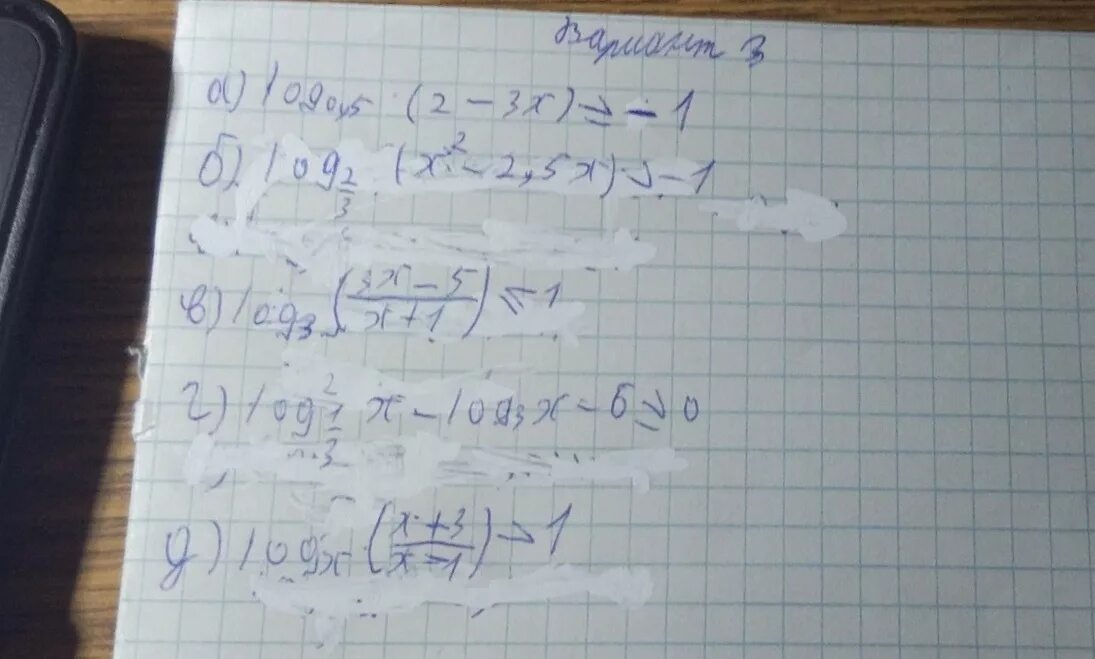 Вариант 3
а) log₀,₅ (2 - 3x) ≥ - 1
б) log_{2/3} (x² - 2,5x) > -1
в) log₃ ((3x - 5)/(x + 1)) ≤ 1
г) log²_{1/3} x - log₃ x - 6 ≥ 0
д) logₓ ((x + 3)/(x - 1)) > 1